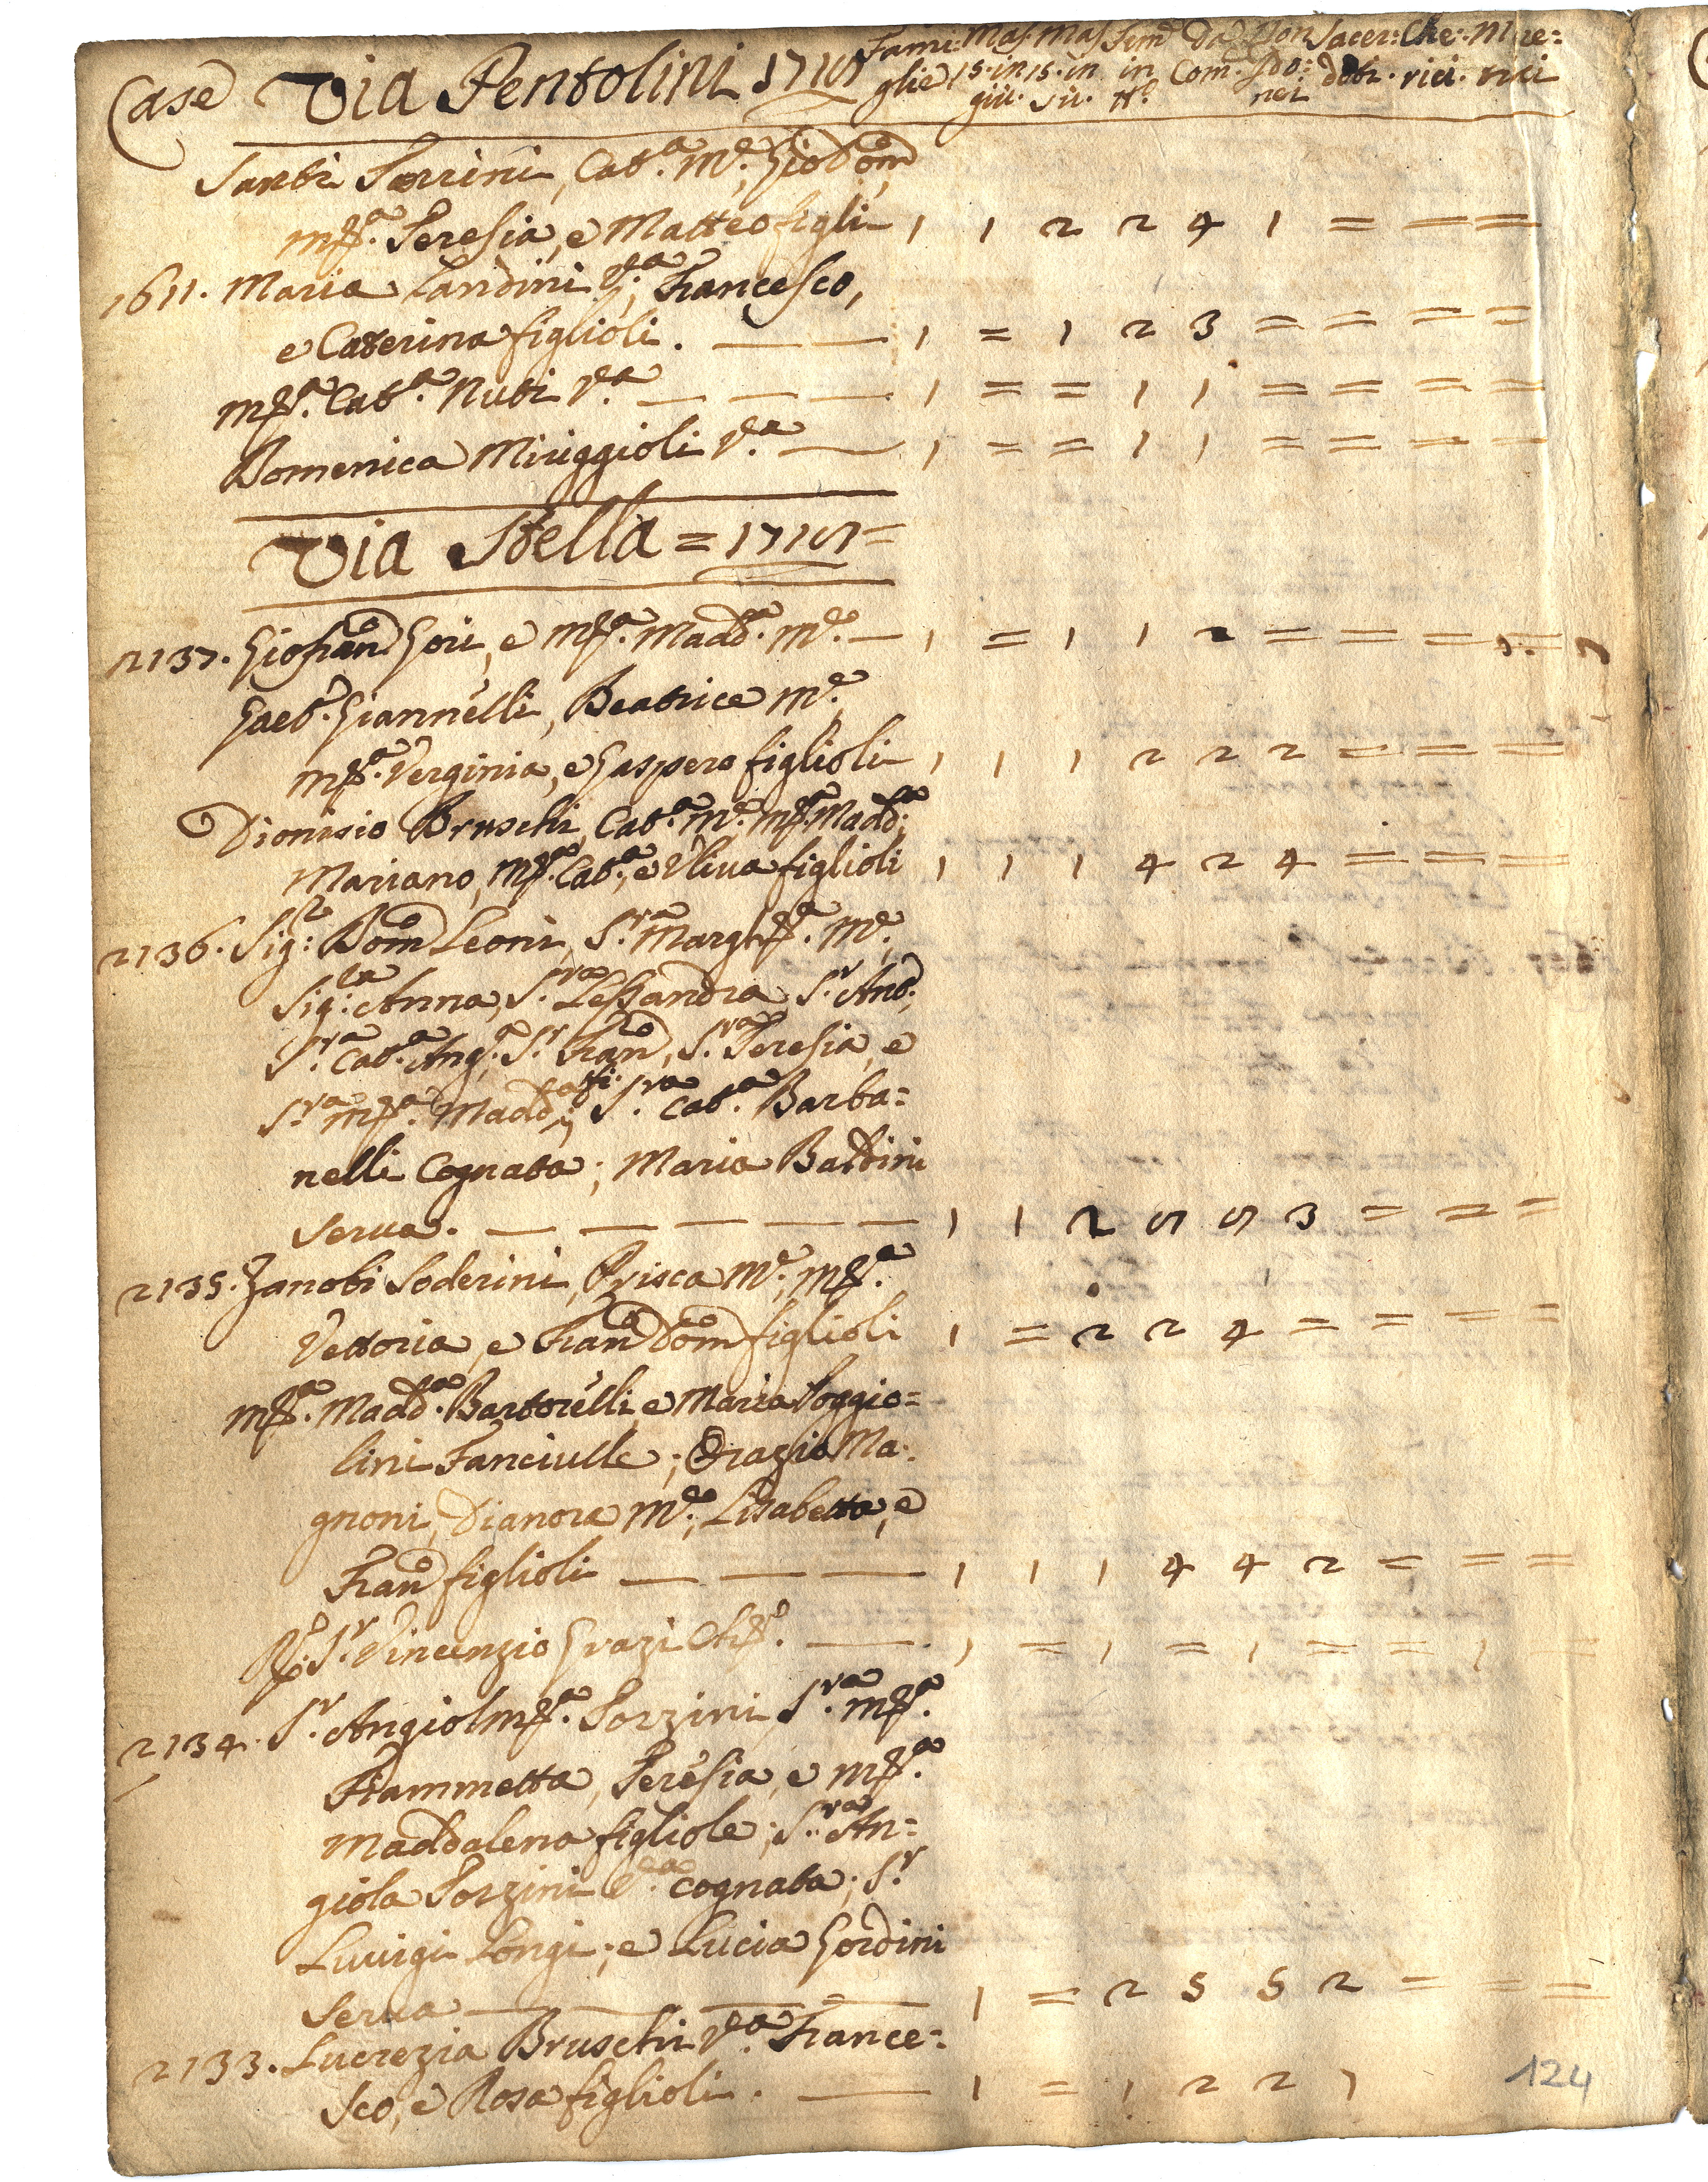 Case Via Pentolini 1715 Fami: Mas. Mas. Fem.e Da Non Sacer: Che: Mre:
glie 15. in 15. in in Com. Ido: doti. rici. nici
giù. sù. tt.o nei
Santi Torrini, Cat.a M.e, Gio Dom.o
M.a Teresia, e Matteo figli 1 1 2 2 4 1 = = =
1611. Maria Landini V.a, Francesco,
e Caterina figlioli. — — 1 = 1 2 3 = = = =
M.a Cat.a Nuti V.a — — — 1 = = 1 1 = = = =
Domenica Miriggioli V.a — 1 = = 1 1 = = = =
Via Stella = 1715 =
2137. Gio Fran.o Gori, e M.a Madd.a M.e — 1 = 1 1 2 = = = =
Gaet.o Giannelli, Beatrice M.e,
M.a Verginia, e Gaspero figlioli 1 1 1 2 2 2 = = =
Dionisio Bruschi, Cat.a M.e, M.a Madd.a,
Mariano, M.a Cat.a, e Uliva figlioli 1 1 1 4 2 4 = = =
2136. Sig.r Dom.o Leoni, S.ra Margh.a M.e,
Sig.ra Anna, S.ra Lessandra S.r Ant.o,
S.ra Cat.a Ang.a, S.r Fran.o, S.ra Teresia, e
S.ra M.a Madd.a fi.; S.ra Cat.a Barba=
nelli Cognata; Maria Baldini
serva. — — — — — 1 1 2 5 5 3 = = =
2135. Zanobi Soderini, Prisca M.e, M.a
Vettoria, e Fran.o Dom.o figlioli 1 = 2 2 4 = = = =
M.a Madd.a Bartorelli, e Maria Poggio=
lini Fanciulle; Orazio Ma=
gnoni, Dianora M.e, Lisabetta, e
Fran.o figlioli — — — 1 1 1 4 4 2 = = =
S.r Vincenzio Grazi Ch.o — 1 = 1 = 1 = = 1 =
2134. S.r Angiol M.a Porzini S.ra M.a
Fiammetta, Teresia, e M.a
Maddalena figliole; S.ra An=
giola Porzini V.a cognata; S.r
Luvigi Longi; e Lucia Gordini
Serva — — — — 1 = 2 5 5 2 = = =
2133. Lucrezia Bruschi V.a France=
sco, e Rosa figlioli. — 1 = 1 2 2 1
124